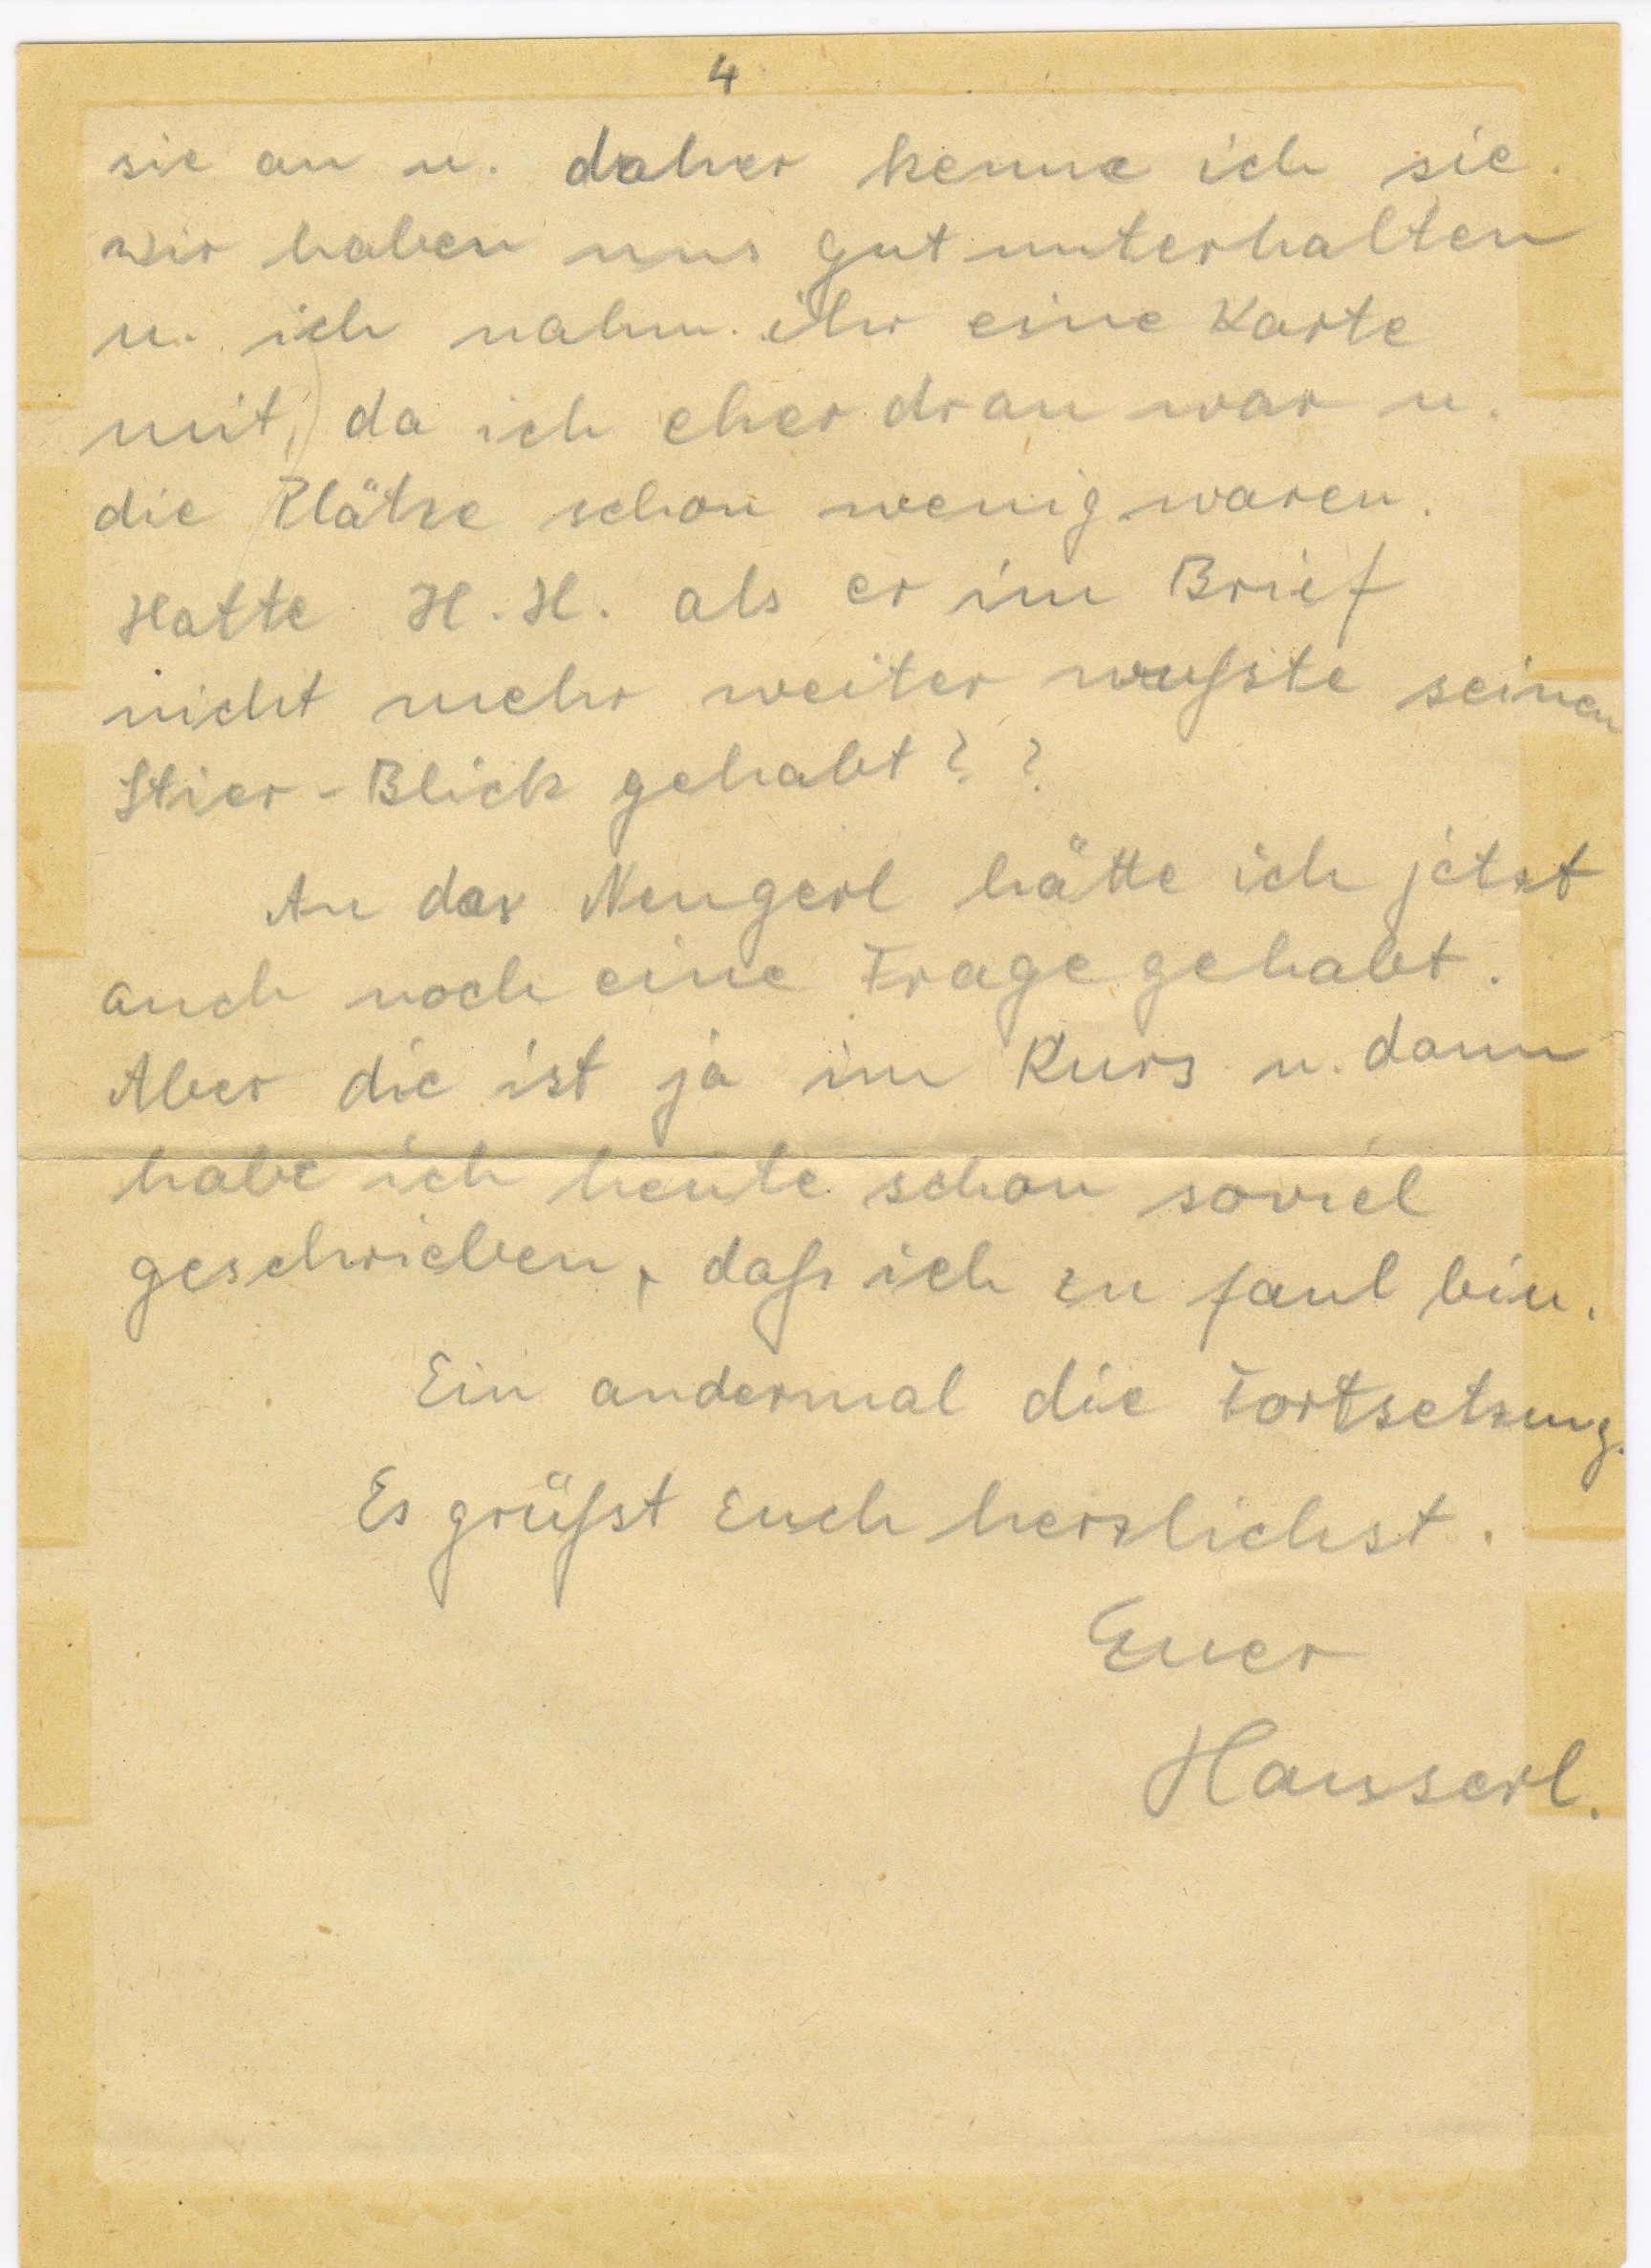 4
sie an u. daher kenne ich sie.
wir haben uns gut unterhalten
u. ich nahm ihr eine Karte
mit, da ich eher dran war u.
die Plätze schon wenig waren.
Hatte H. H. als er im Brief
nicht mehr weiter wußste seinen
Stier-Blick gehabt? ?
An das Neugerl hätte ich jetzt
auch noch eine Frage gehabt.
Aber die ist ja im Kurs u. dann
habe ich heute schon soviel
geschrieben, daß ich zu faul bin.
Ein andermal die Fortsetzung.
Es grüßt Euch herzlichst.
Euer
Hansserl.